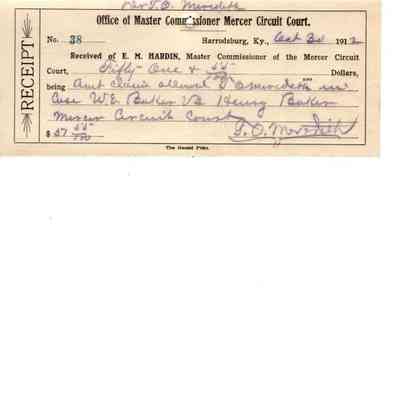 T. O. Meredith
Office of Master Commissioner Mercer Circuit Court.
RECEIPT
No. 38 Harrodsburg, Ky., Oct 30 1912
Received of E. M. HARDIN, Master Commissioner of the Mercer Circuit
Court, Fifty One & 55/100 Dollars,
being Amt claim allowed Meredith in
Case W E Baker vs Henry Baker
Mercer Circuit Court
$ 55/100 T. O. Meredith
The Herald Print.